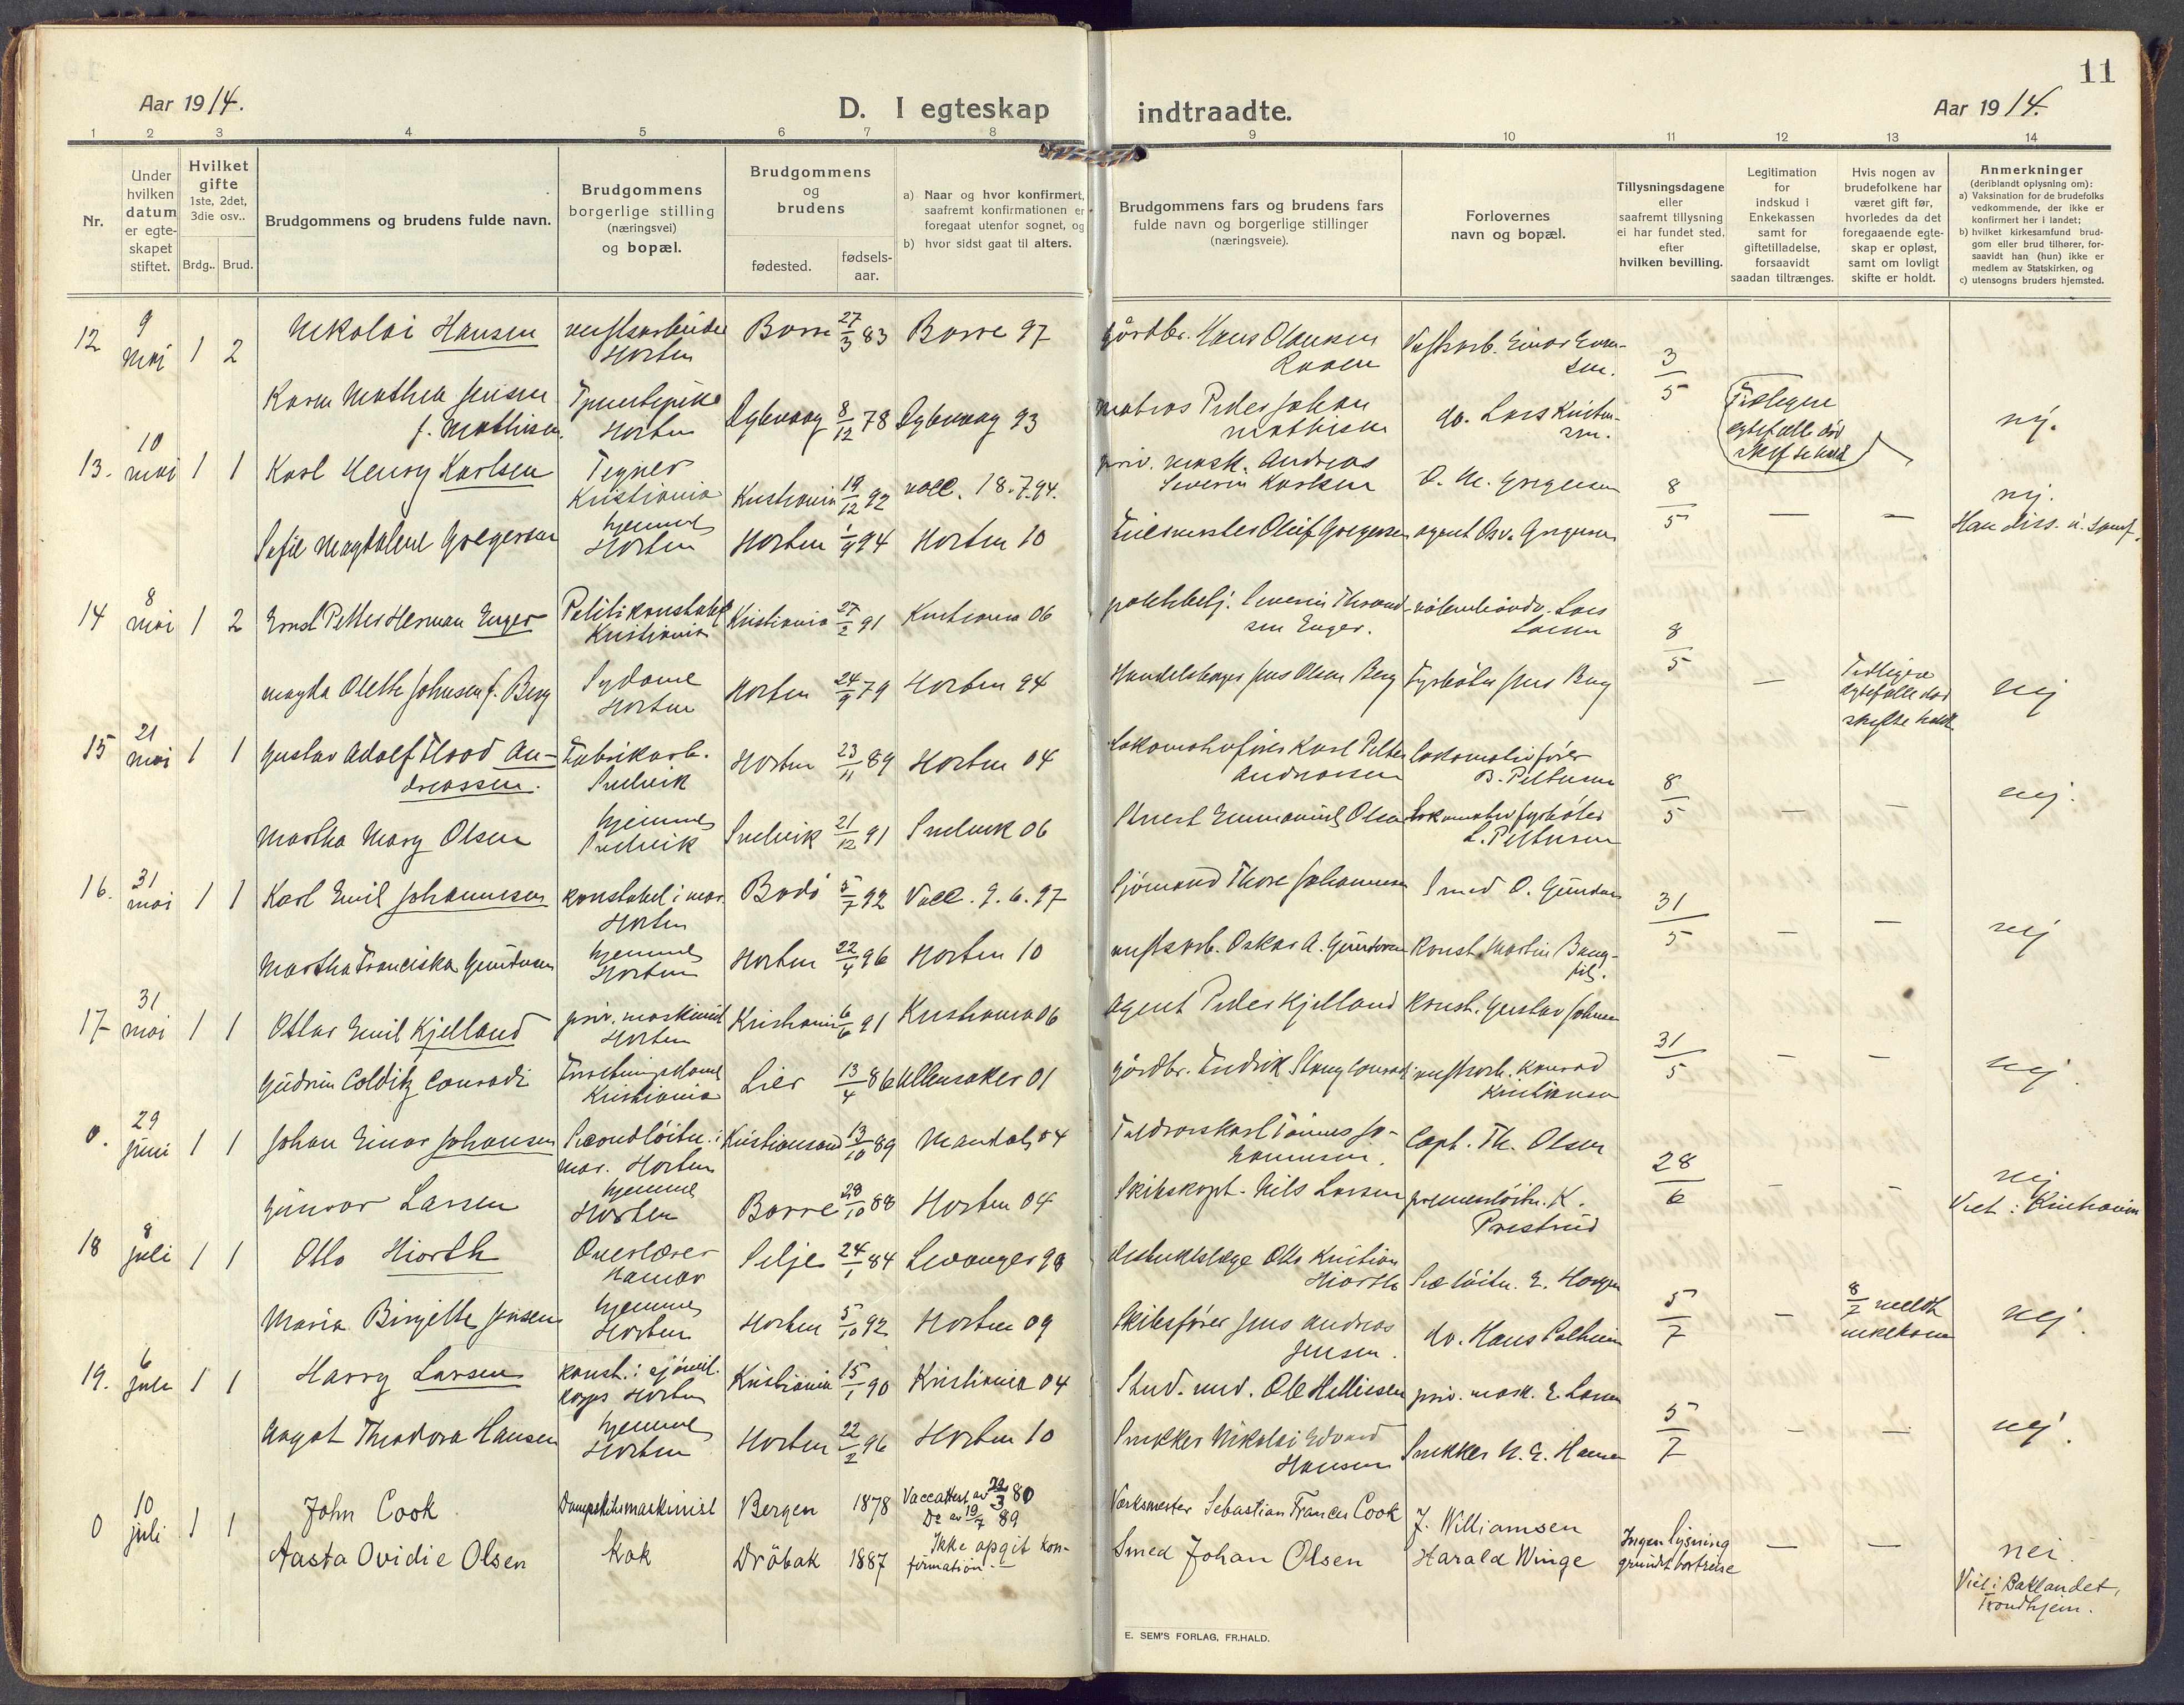 11
Aar 1914.
D. I egteskap indtraadte.
Aar 1914.
1 2 3 4 5 6 7 8 9 10 11 12 13 14
Nr.
Under hvilken datum er egte-skapet stiftet.
Hvilket gifte 1ste, 2det, 3die osv..
Brdg.. Brud.
Brudgommens og brudens fulde navn.
Brudgommens borgerlige stilling (næringsvei) og bopæl.
Brudgommens og brudens
fødested.
fødsels-aar.
a) Naar og hvor konfirmert, saafremt konfirmationen er foregaat utenfor sognet, og
b) hvor sidst gaat til alters.
Brudgommens fars og brudens fars fulde navn og borgerlige stillinger (næringsveie).
Forlovernes navn og bopæl.
Tillysningsdagene eller saafremt tillysning ei har fundet sted, efter hvilken bevilling.
Legitimation for indskud i Enkekassen samt for giftetilladelse, forsaavidt saadan tiltrænges.
Hvis nogen av brudefolkene har været gift før, hvorledes da det foregaaende egte-skap er opløst, samt om lovligt skifte er holdt.
Anmerkninger (deriblandt oplysning om):
a) Vaksination for de brudefolks vedkommende, der ikke er konfirmert her i landet;
b) hvilket kirkesamfund brud-gom eller brud tilhører, for-saavidt han (hun) ikke er medlem av Statskirken, og
c) utensogns bruders hjemsted.
12 9 mai 1 2 Nikolai Hansen Horten Borre 27/3 83 Borre 97 gårdbr. Hans Olausen 3/5
Karen Mathea Jensen f. Mathisen. Horten Dybvaag 8/12 78 Dybvaag 93 matros Peder Johan Mathisen do. Lars Kristensen. Tidligere egtefælle død nej.
13. 10 mai 1 1 Karl Henry Karlsen Tegner Kristiania Kristiania 19/12 92 vacc. 18.7.94. priv. mask. Andreas Severin Karlsen O. M. Gregersen 8/5 — — nej.
Sofie Magdalene Gregersen hjemme Horten Horten 1/9 94 Horten 10 Oluf Gregersen agent Osv. Gregersen
14 8 mai 1 2 Ernst Petter Herman Enger Politikonstabel Kristiania Kristiania 27/2 91 Kristiania 06 Severin Thorandsen Enger. Lars Larsen 8/5
Magda Olette Johnsen f. Berg Sydame Horten Horten 24/9 79 Horten 94 Jens Olsen Berg Fyrbøter Jens Berg — Tidligere egtefælle død skifte holdt nej
15 21 mai 1 1 Gustav Adolf Flood Andreassen. Fabrikarb. Svelvik Horten 23/11 89 Horten 04 Lokomotivfører Karl Petter Andreassen lokomotivfører B. Pettersen 8/5 — — nej.
Martha Mary Olsen hjemme Svelvik Svelvik 21/12 91 Svelvik 06 Emmanuel Olsen lokomotivfyrbøter L. Pettersen
16. 31 mai 1 1 Karl Emil Johannessen konstabel i mar. Horten Bodø 5/7 92 Vacc. 9.6.97 Sjømand Thore Johannessen Smed O. Gundersen 31/5 — — nej
Martha Franciska Gundersen hjemme Horten Horten 22/4 96 Horten 10 Oskar A. Gundersen Konst. Martin
17 31 mai 1 1 Ottar Emil Kjelland priv. maskinist Horten Kristiania 6/6 91 Kristiania 06 Agent Peder Kjelland Konst. Gustav Johnsen 31/5 — — nej.
Gudrun Colditz Conradi Kristiania Lier 13/4 86 Ullensaker 01 gårdbr. Fredrik Stang Conradi Konrad Kristiansen
0. 29 juni 1 1 Johan Einar Johansen Secondløitn. i mar. Horten Kristiansand 13/10 89 Mandal 04 Capt. Th. Olsen 28/6 — — nej
Gunvor Larsen hjemme Horten Borre 28/10 88 Horten 04 Skibskapt. Nils Larsen premierløitn. K. Prestrud Viet i Kristiania
18 8 juli 1 1 Otto Hiorth Overlærer Hamar Selje 24/1 84 Levanger 98 distriktslæge Otto Kristian Hiorth Sec løitn. E. 5/7 — nej.
Maria Birgitte Jensen hjemme Horten Horten 5/10 92 Horten 09 Skibsfører Jens Andreas Jensen. do. Hans
19. 6 juli 1 1 Harry Larsen konst. i sjømil. korps Horten Kristiania 15/1 90 Kristiania 04 Stud. med. Ole priv. mask. E. Larsen 5/7 — — nej.
Aagot Theodora Hansen hjemme Horten Horten 22/2 96 Horten 10 Snekker Nikolai Edvard Hansen Snekker N. E. Hansen
0 10 juli 1 1 John Cook Dampskibsmaskinist Bergen 1878 Vaccattest av 3 80 Do av 19/7 89 Værksmester Sebastian Frances Cook J. Williamsen Ingen lysning grundet bortreise — — nei.
Aasta Ovidie Olsen kok Drøbak 1887 Ikke opgit kon-firmation. — Smed Johan Olsen Harald Winge Viet i Baklandet, Trondhjem.
E. SEM'S FORLAG, FR.HALD.